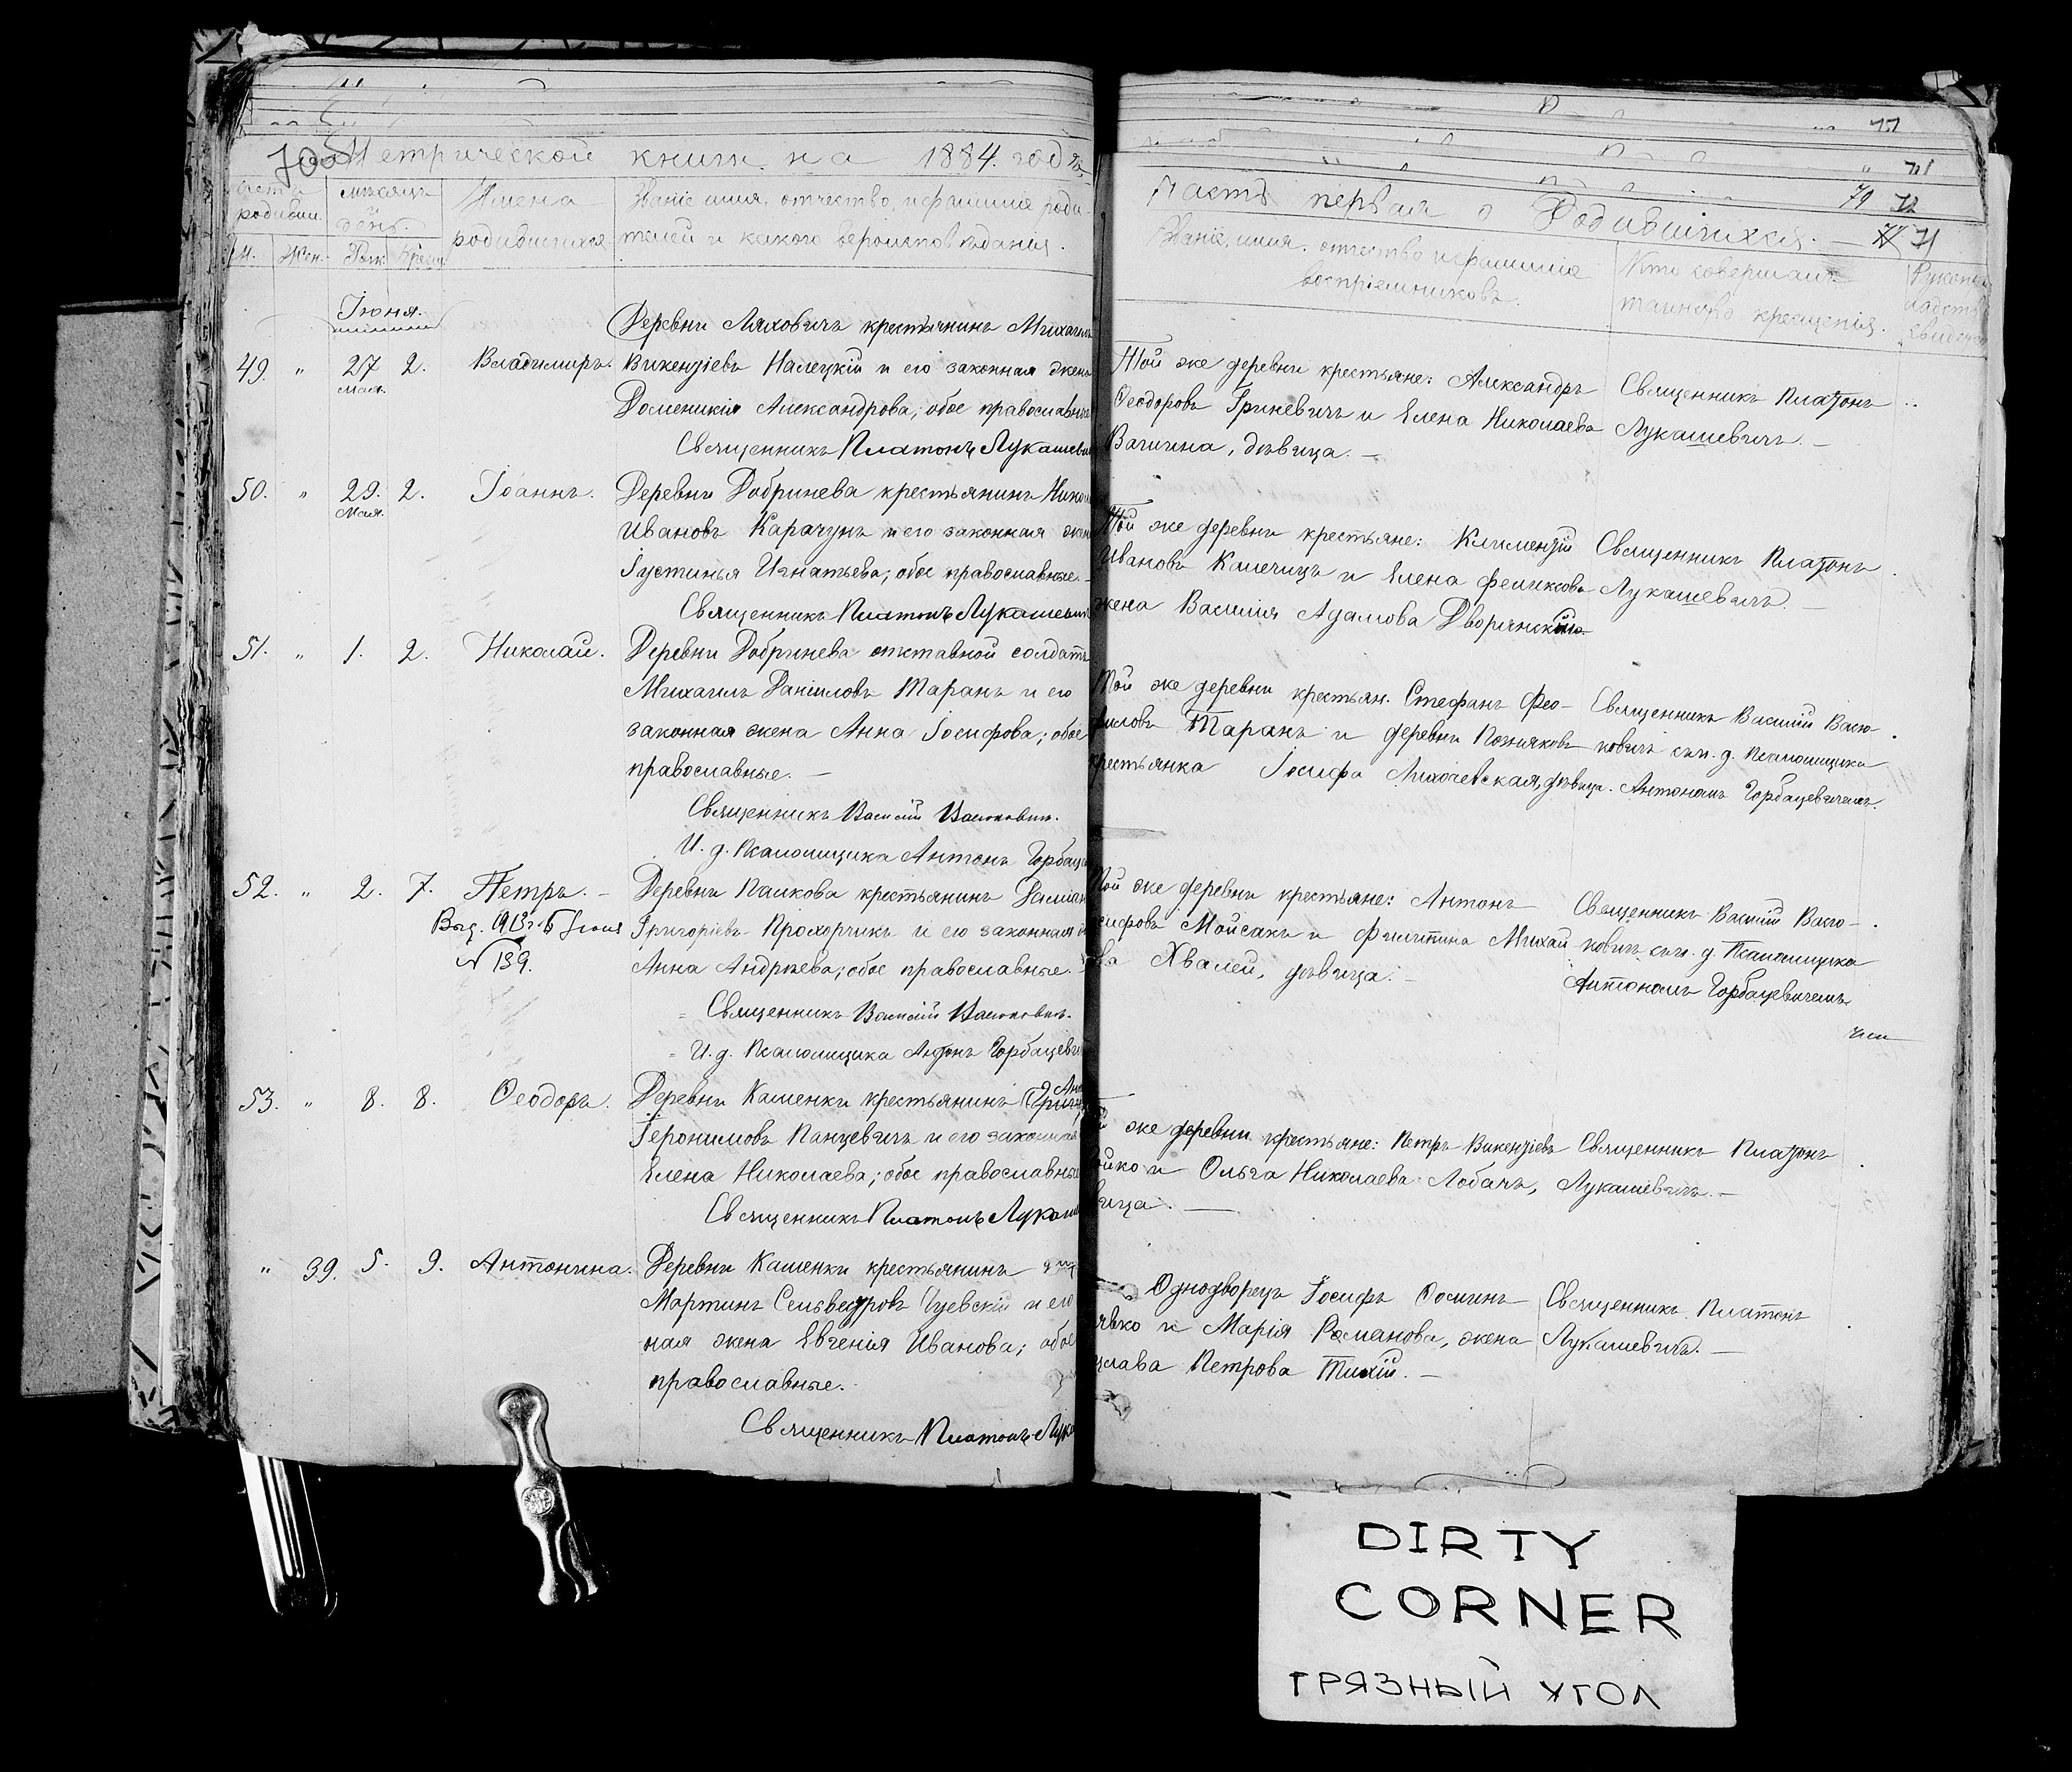 70об Метрической книги на 1884. годъ
Счетъ родивш.
мѣсяцъ день.
Имена родившихся
Званіе имя, отчество, и фамилія роди-
телей и какого вѣроисповѣданія.
М. Жен. Рож. Крещ.
Іюня.
Деревни Ляховичъ крестьянинъ Михаилъ
49. " 27 Мая. 2. Владимиръ. Викентіевъ Налецкій и его законная жена
Доменикія Александрова; обое православные
Священникъ Платонъ Лукашевичъ
50. " 29. Мая. 2. Іоаннъ. Деревни Добринева крестьянинъ
Ивановъ Карачунъ и его законная жена
Іустинья Игнатьева; обое православные.
Священникъ Платонъ Лукашевичъ
51. " 1. 2. Николай. Деревни Добринева отставной солдатъ
Михаилъ Даніиловъ Таранъ и его
законная жена Анна Іосифова; обое
православные. —
Священникъ Василій Васюковичъ.
И. д. Псаломщика Антонъ
52. " 2. 7. Петръ. — Деревни Палкова крестьянинъ
Выд. 1913 г. 5 Іюня Григоріевъ Прохорчикъ и его законная
№ 139. Анна Андреева; обое православные.
Священникъ Василій Васюковичъ.
И. д. Псаломщика Антонъ Горбацевич
53. " 8. 8. Ѳеодоръ. Деревни Каменки крестьянинъ
Іеронимовъ Панцевичъ и его законная
Елена Николаева; обое православные
Священникъ Платонъ
" 39. 5. 9. Антонина. Деревни Каменки крестьянинъ
Мартинъ Сельвестровъ и его
ная жена Евгенія Иванова; обое
православные.
Священникъ Платонъ
71
71
70 72
71
Часть первая о Родившихся. —
Званіе, имя, отчество и фамилія
воспріемниковъ.
Кто совершалъ
таинство крещенія.
Той же деревни крестьяне: Александръ Священникъ Платонъ
Ѳеодоровъ Гриневичъ и Елена Николаева Лукашевичъ. —
Вагина, дѣвица. —
Той же деревни крестьяне: Климентій Священникъ Платонъ
Ивановъ Камечицъ и Елена Феликсова Лукашевичъ.
жена Василія Адамова Дворянскаго
Той же деревни крестьян. Стефанъ Фео- Священникъ Василій Васю-
филовъ Таранъ и деревни Позняковъ ковичъ съ и. д. Псаломщика
крестьянка Іосифа Лихачевская, дѣвица. Антономъ Горбацевичемъ.
Той же деревни крестьяне: Антонъ Священникъ Василій Васю-
сифовъ Мойсакъ и Филипина Михай ковичъ съ и. д. Псаломщика
ва Хвалей, дѣвица. — Антономъ Горбацевичемъ
же деревни крестьяне: Петръ Викентіевъ Священникъ Платонъ
ойко и Ольга Николаева Лобачъ, Лукашевичъ. —
вица. —
Однодворецъ Іосифъ Осминъ Священникъ Платонъ
и Марія Романова, жена Лукашевичъ. —
слава Петрова Тихій. —
DIRTY
CORNER
ГРЯЗНЫЙ УГОЛ